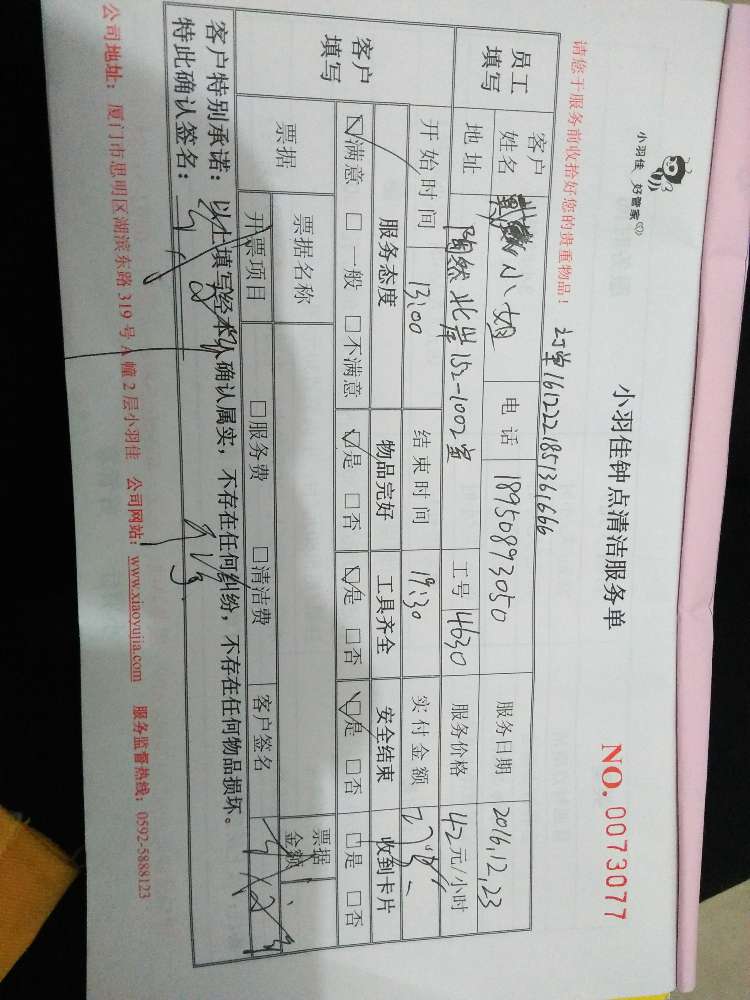 小羽佳 好管家
小羽佳钟点清洁服务单
NO. 0073077
请您于服务前收拾好您的贵重物品！
订单1612221851361666
员工填写
客户姓名 小姐 电话 18950893050 服务日期 2016.12.23
地址 陶然北岸152-1002室 工号 4630 服务价格 42元/小时
客户填写
开始时间 13:00 结束时间 19:30 实付金额
服务态度 物品完好 工具齐全 安全结束 收到卡片
☑满意 □一般 □不满意 ☑是 □否 ☑是 □否 ☑是 □否 □是 □否
票据 票据名称 票据金额
开票项目 □服务费 □清洁费 客户签名
客户特别承诺：以上填写经本人确认属实，不存在任何纠纷，不存在任何物品损坏。
特此确认签名：
公司地址：厦门市思明区湖滨东路319号A幢2层小羽佳 公司网站：www.xiaoyujia.com 服务监督热线：0592-5888123